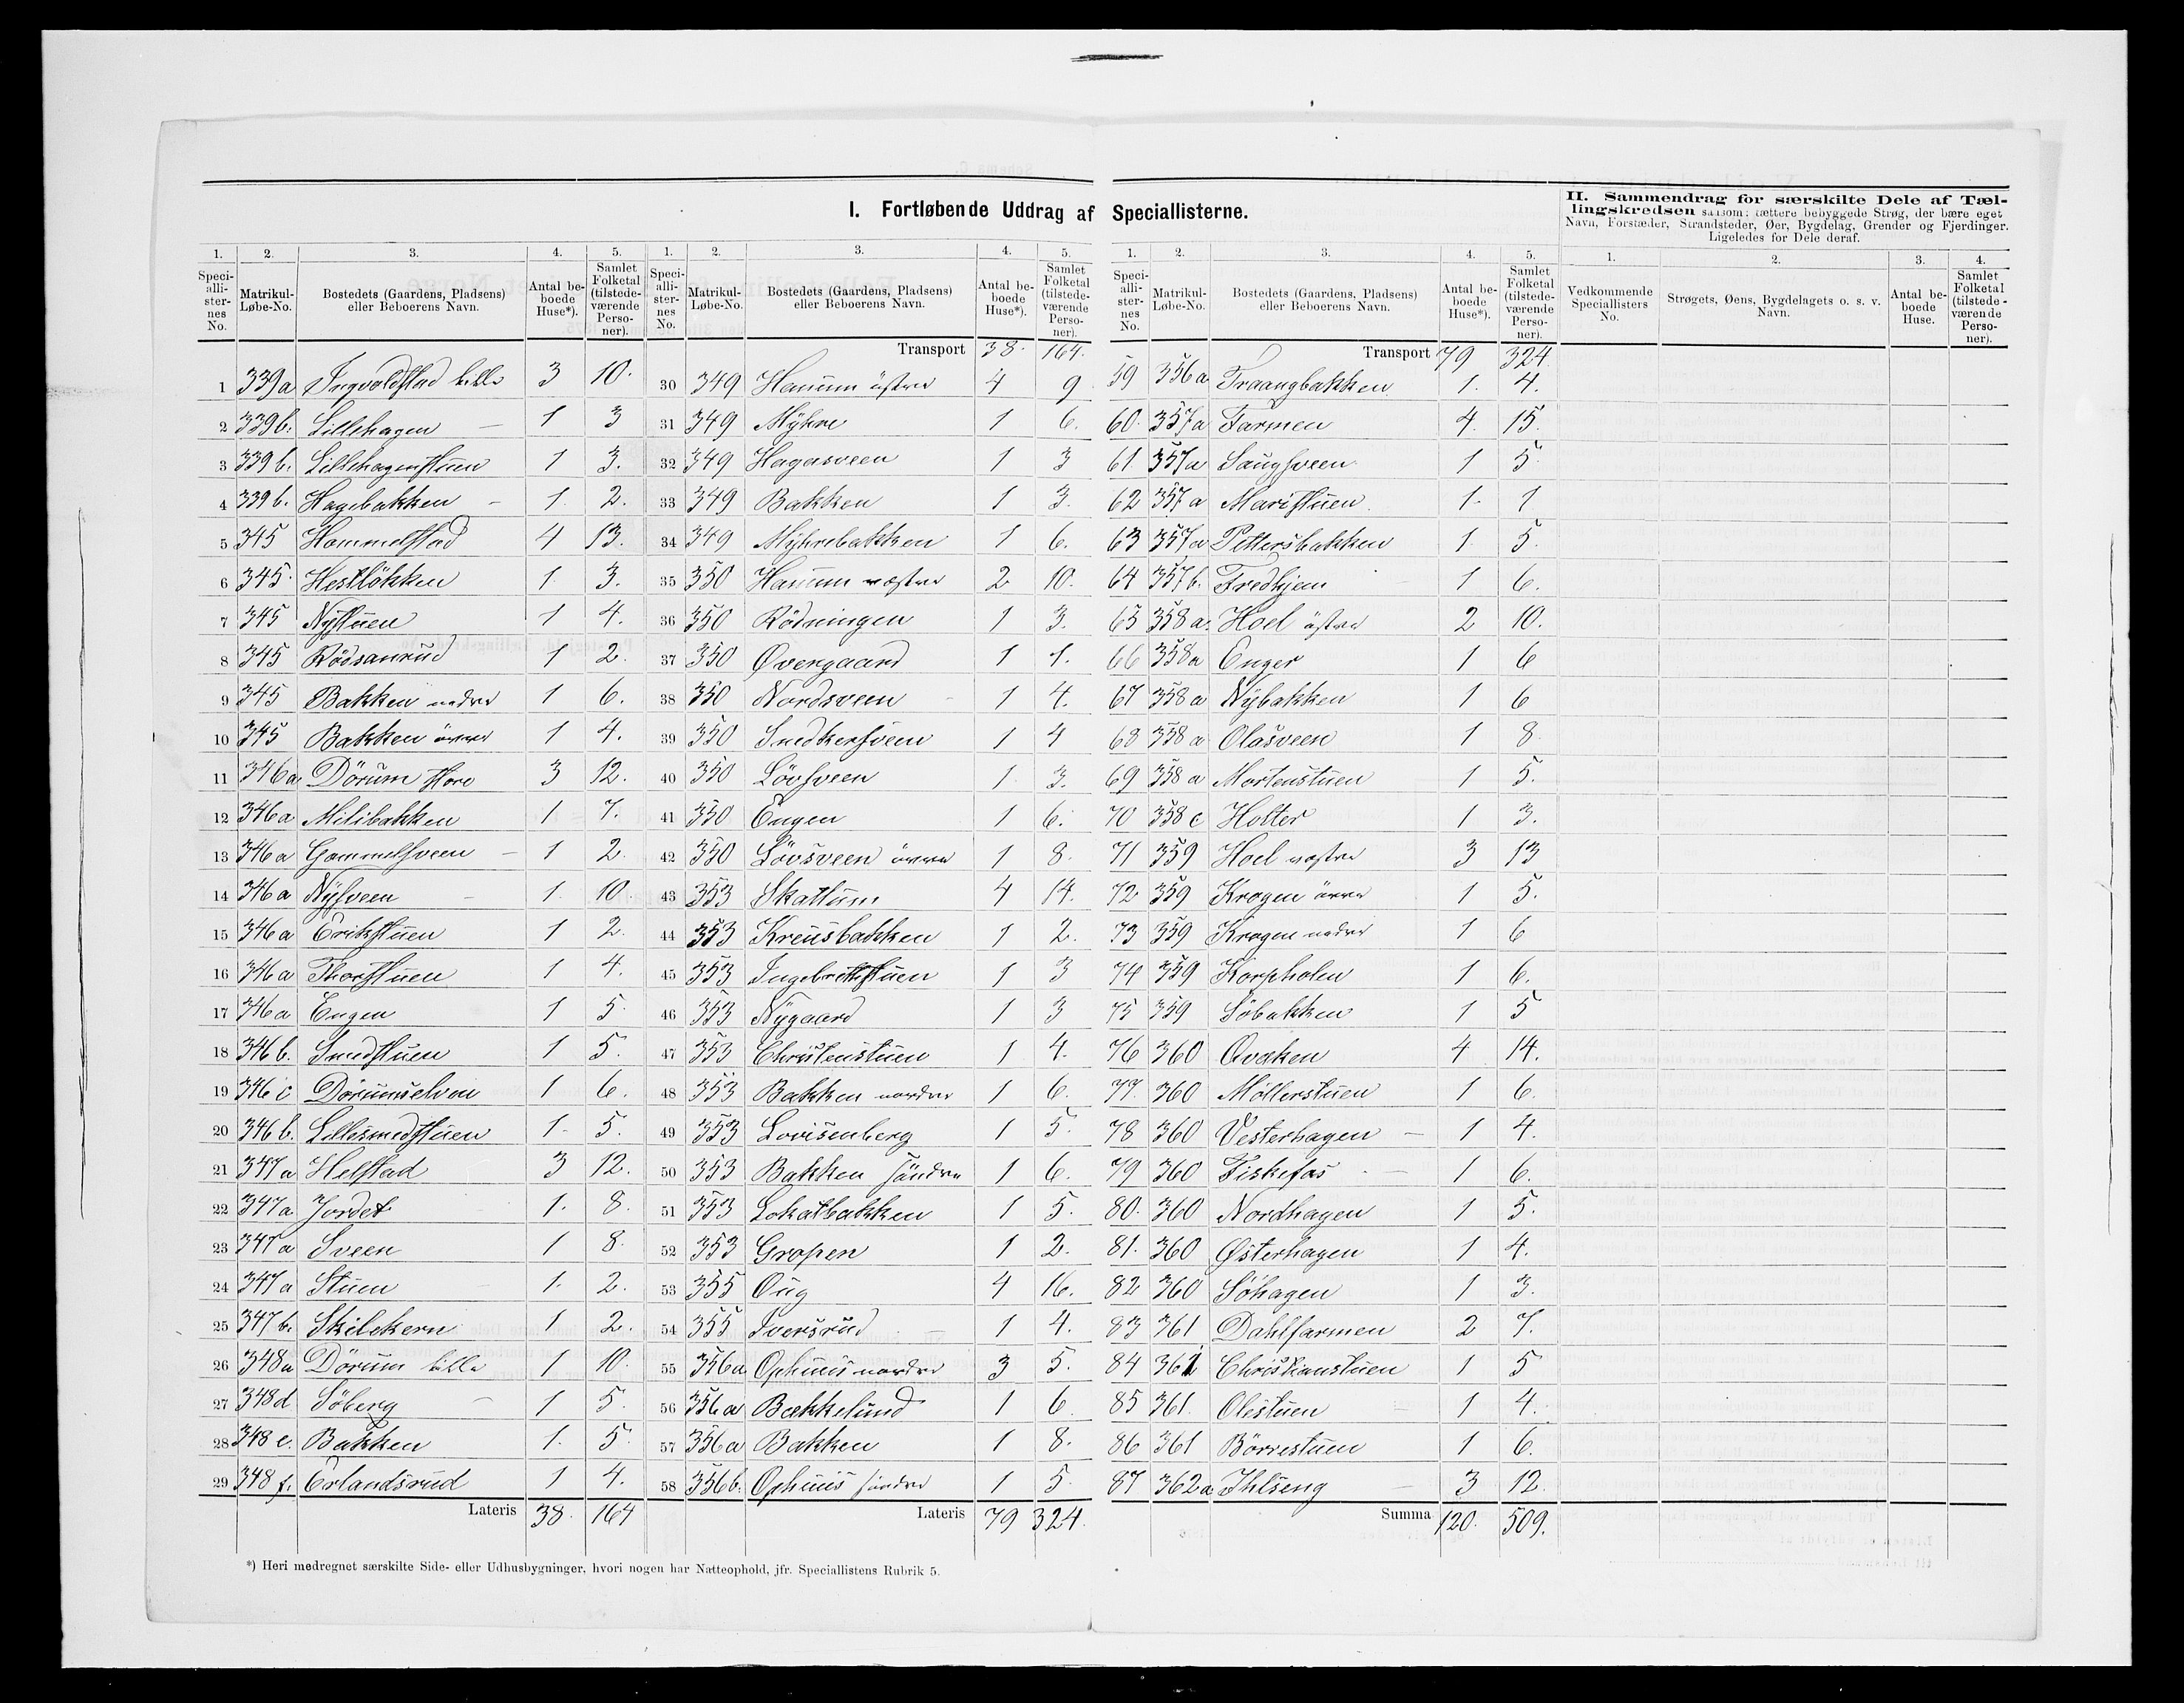 I. Fortløbende Uddrag af Speciallisterne.
II. Sammendrag for særskilte Dele af Tællingskredsen saasom: tættere bebyggede Strøg, der bære eget Navn, Forstæder, Strandsteder, Øer, Bygdelag, Grender og Fjerdinger. Ligeledes for Dele deraf.
1. 2. 3. 4. 5. 1. 2. 3. 4. 5. 1. 2. 3. 4. 5. 1. 2. 3. 4.
Speciallisternes No. Matrikul-Løbe-No. Bostedets (Gaardens, Pladsens) eller Beboerens Navn. Antal beboede Huse*). Samlet Folketal (tilstedeværende Personer).
Speciallisternes No. Matrikul-Løbe-No. Bostedets (Gaardens, Pladsens) eller Beboerens Navn. Antal beboede Huse*). Samlet Folketal (tilstedeværende Personer).
Speciallisternes No. Matrikul-Løbe-No. Bostedets (Gaardens, Pladsens) eller Beboerens Navn. Antal beboede Huse*). Samlet Folketal (tilstedeværende Personer).
Vedkommende Speciallisters No. Strøgets, Øens, Bygdelagets o. s. v. Navn. Antal beboede Huse. Samlet Folketal (tilstedeværende Personer).
1 339a Ingvoldstad lille 3 10.
2 339b. Lillehagen 1 3
3 339b. Lillehagenstuen 1 3.
4 339b. Hagebakken 1 2.
5 345 Hommelstad 4 13.
6 345. Hestløkken 1 3.
7 345 Nystuen 1 4.
8 345 Rödsanrud 1 2.
9 345 Bakken nedre 1 6.
10 345 Bakken övre 1 4.
11 346a Dörum store 3 12.
12 346a Milibakken 1 7.
13 346a Gammelsveen 1 2.
14 346a Nysveen 1. 10.
15 346a Erikstuen 1 2.
16 346a Thorstuen 1 4.
17 346a Engen 1 5.
18 346b. Smedstuen 1 5.
19 346c Dörumselven 1 6.
20 346b. Lillesmedstuen 1. 5.
21 347a Helstad 3 12.
22 347a Jordet 1. 8.
23 347a Sveen 1 8.
24 347a Stuen 1. 2.
25 347b. Skilekern 1 2.
26 348a Dörum lille 1 10.
27 348d Söberg 1 5.
28 348e. Bakken 1. 5.
29 348f. Erlandsrud 1 4.
Lateris 38. 164
Transport 38. 164.
30 349 Hanum östre 4 9
31 349 Myhre 1 6.
32 349 Hagasveen 1 3
33 349 Bakken 1 3.
34 349 Myhrebakken 1 6.
35 350 Hanum vestre 2 10.
36 350 Rödningen 1 3.
37 350 Øvergaard 1 1.
38 350 Nordsveen 1 4.
39 350 Snedkersveen 1 4
40 350 Lövsveen 1. 3.
41 350 Engen 1 6.
42 350 Lövsveen övre 1 8.
43 353 Skattum 4 14.
44 353 Kreusbakken 1 2.
45 353 Ingebretstuen 1 3
46 353 Nygaard 1 3
47 353 Christenstuen 1 4.
48 353 Bakken nordre 1 6.
49 353 Lovisenberg 1 5.
50 353 Bakken söndre 1 6.
51 353 Lokatbakken 1 5.
52 353 Gropen 1 2.
53 355 Oug 4 16.
54 355 Iversrud 1 4.
55 356a Ophuus nordre 3 5.
56 356a Bækkelund 1 6
57 356a Bakken 1 8.
58 356b. Ophuus söndre 1 5.
Lateris 79 324.
Transport 79 324
59 356a Traangbakken 1. 4.
60. 357a Farmen 4. 15.
61. 357a Saugsveen 1 5
62 357a Maristuen 1. 1
63 357a Pettersbakken 1 5.
64 357b. Fredhjem 1 6.
65 358a. Hoel östre 2 10.
66 358a Enger 1 6
67 358a Nybakken 1 6
68 358a Olasveen 1 8.
69 358a Mortenstuen 1 5.
70 358c Holter 1 3.
71 359 Hoel vestre 3 13
72 359 Krogen övre 1 5.
73 359 Krogen nedre 1 6
74 359 Korpholen 1 6.
75 359 Söbakken 1 5
76 360 Qvæken 4 14.
77. 360 Möllerstuen 1 6.
78 360 Vesterhagen 1 4.
79 360 Fiskefas 1 6.
80. 360 Nordhagen 1 5.
81. 360 Østerhagen 1 4.
82 360 Söhagen 1 3.
83 361 Dahlfarmen 2 7.
84 361 Christianstuen 1 5
85 361. Olestuen 1 4.
86 361 Börrestuen 1 6.
87 362a Ihlseng 3 12.
Summa 120. 509.
*) Heri medregnet særskilte Side- eller Udhusbygninger, hvori nogen har Natteophold, jfr. Speciallistens Rubrik 5.